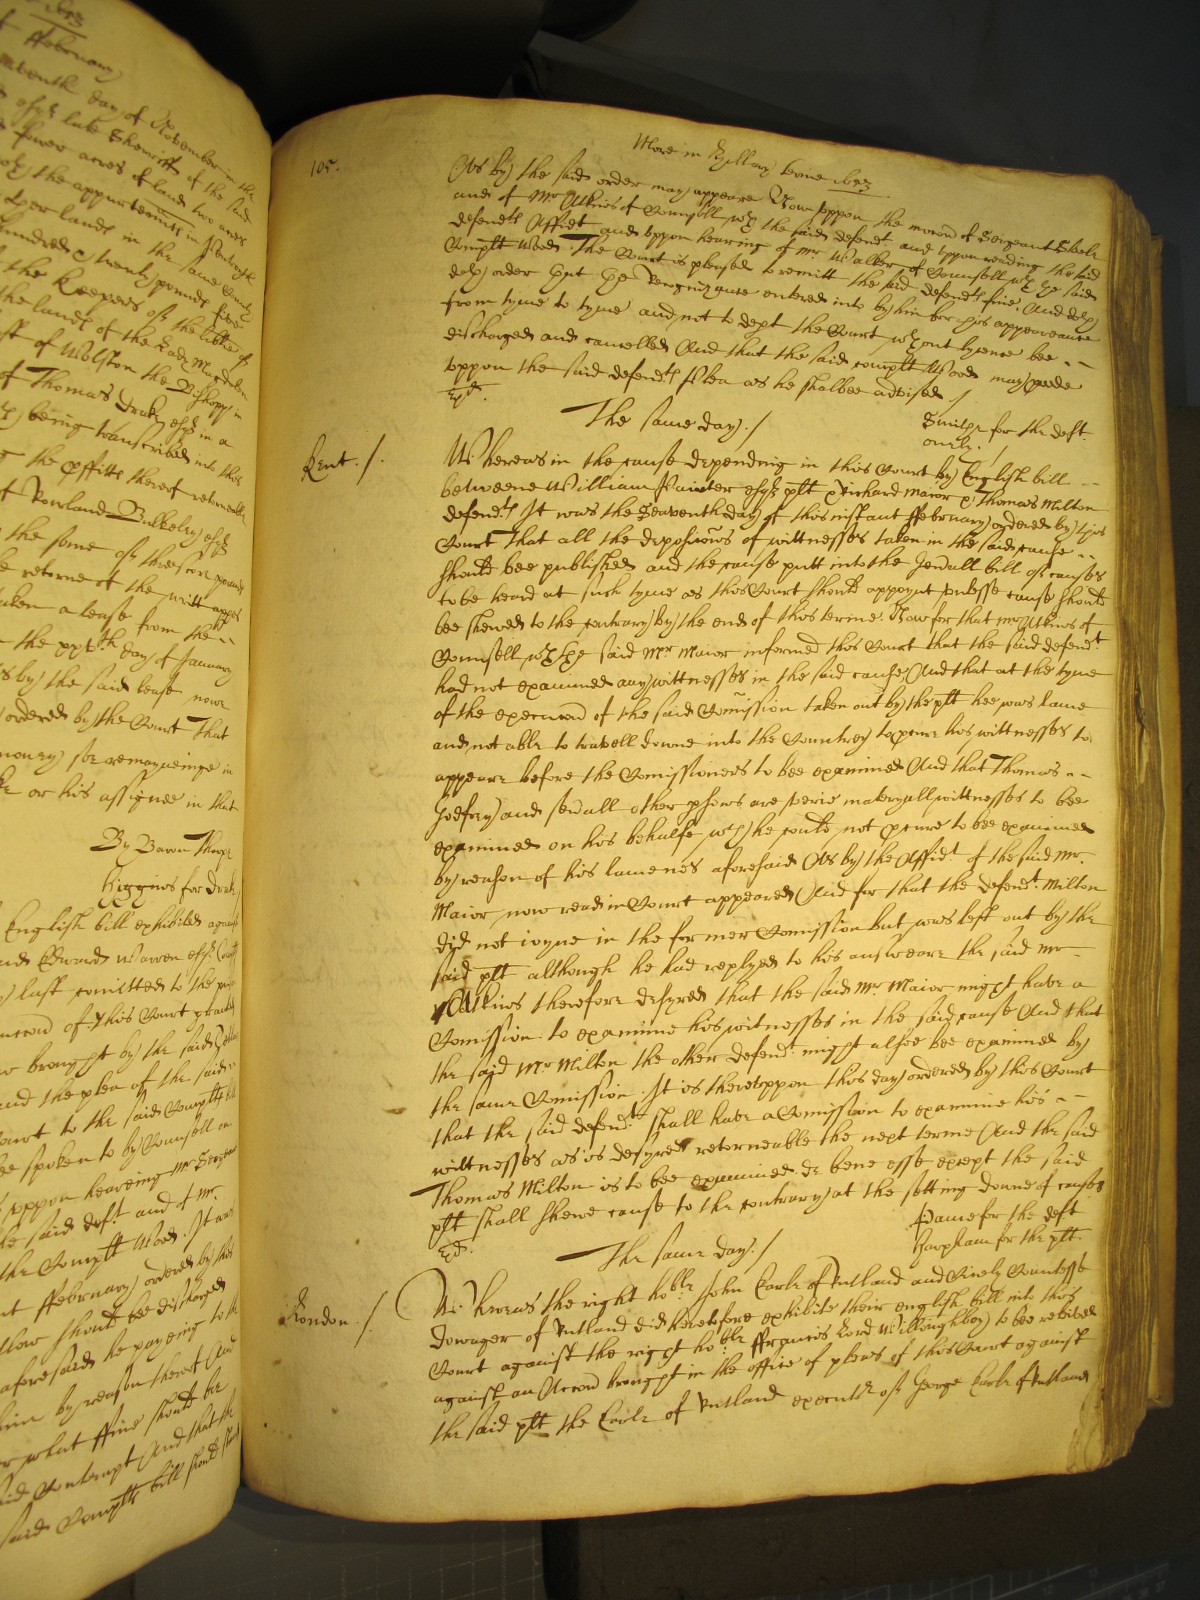 1653
of ffebruary
Seaventh day of November in the
esqr late Sherriff of the said
fower acres of land two acres
the appurtennts in Pentrich
lands in the same County
hundred & twenty pounds five
the Keepers of the libtie of
the lands of the Lady Magdalen
of Wolston the Bishopp in
of Thomas Drake esqr in a
being transcribed into this
the pffitts thereof retorneable
of Rowland Bulkeley esqr
the some of threescore pounds
retorne of the writt
taken a lease from the --
the xxxth day of January
by the said lease now
ordered by the Court That
money soe remayneinge in
or his assignee in that
By Baron Thorpe
Higgins for Drake
English bill exhibited against
Edward Warren esqr
last comitted to the
of this Court
brought by the said
and the plea of the said
Court to the said Complts bill
bee spoken to by Counsell on
uppon heareing Mr Sergeant
the said deft and of Mr
the Complt Wood. It was
ffebruary ordered by this
should be discharged
aforesaid he payeing to the
him by reason thereof And
what ffine should be
said Contempt And that the
said Complts bill should stand
105.
More in Hyllary terme 1653
As by the said order may appeare Now uppon the mocon of Sergeant Steele
and of Mr Atkins of Counsell wth the said defendt and uppon reading the said
defendts Affidt and uppon hearing of Mr Walker of Counsell wth the said
Complt Wood. The Court is pleased to remitt the said defendts fine. And doth
doth order that the Recognizance entered into by him for his appeareance
from tyme to tyme and not to dept the Court wthout lycence bee --
discharged and cancelled And that the said complt Wood may pcede
uppon the said defendts Plea as he shalbee advised /
Exd.
The same day. /
Smithe for the deft
onely. /
Kent. /.
Whereas in the cause depending in this Court by English bill --
betweene William Painter esqr plt & Richard Maior & Thomas Milton
defendts It was the Seaventh day of this instant ffebruary ordered by this
Court That all the deposicons of wittnesses taken in the said cause --
should bee published and the cause putt into the Genall bill of causes
to be heard at such tyme as this Court should appoynt unlesse cause should
bee shewed to the contrary by the end of this terme. Now for that Mr Atkins of
Counsell wth the said Mr Maior informed this Court that the said defendt
had not examined any wittnesses in the said cause And that at the tyme
of the execucon of the said Comission taken out by the plt hee was lame
and not able to travell downe into the Countrey to pcure his wittnesses to
appeare before the Comissioners to bee examined And that Thomas --
Godfrey and sevall other psons are verie materyall wittnesses to bee
examined on his behalfe wch he could not pcure to bee examined
by reason of his lamenes aforesaid As by the Affidt of the said Mr.
Maior now read in Court appeared And for that the defendt Milton
did not ioyne in the former Comission but was left out by the
said plt although he had replyed to his answeare the said Mr
Atkins therefore desyred that the said Mr Maior might have a
Comission to examine his witnesses in the said cause And that
the said Mr Milton the other defendt might alsoe bee examined by
the same Comission. It is thereuppon this day ordered by this Court
that the said defendts shall have a Comission to examine his --
wittnesses as is desyred retorneable the next terme And the said
Thomas Milton is to bee examined de bene esse except the said
plt shall shewe cause to the contrary at the setting downe of causes
Exd.
Payne for the deft
Hopkam for the plt.
The same day. /
London. /.
Whereas the right hoble John Earle of Rutland and Cicely Countesse
Dowager of Rutland did heretofore exhibite their english bill into this
Court against the right hoble ffrancis Lord Willoughbey to bee releived
against an Accon brought in the office of pleas of this Court against
the said plt the Earle of Rutland executr of George Earle of Rutland